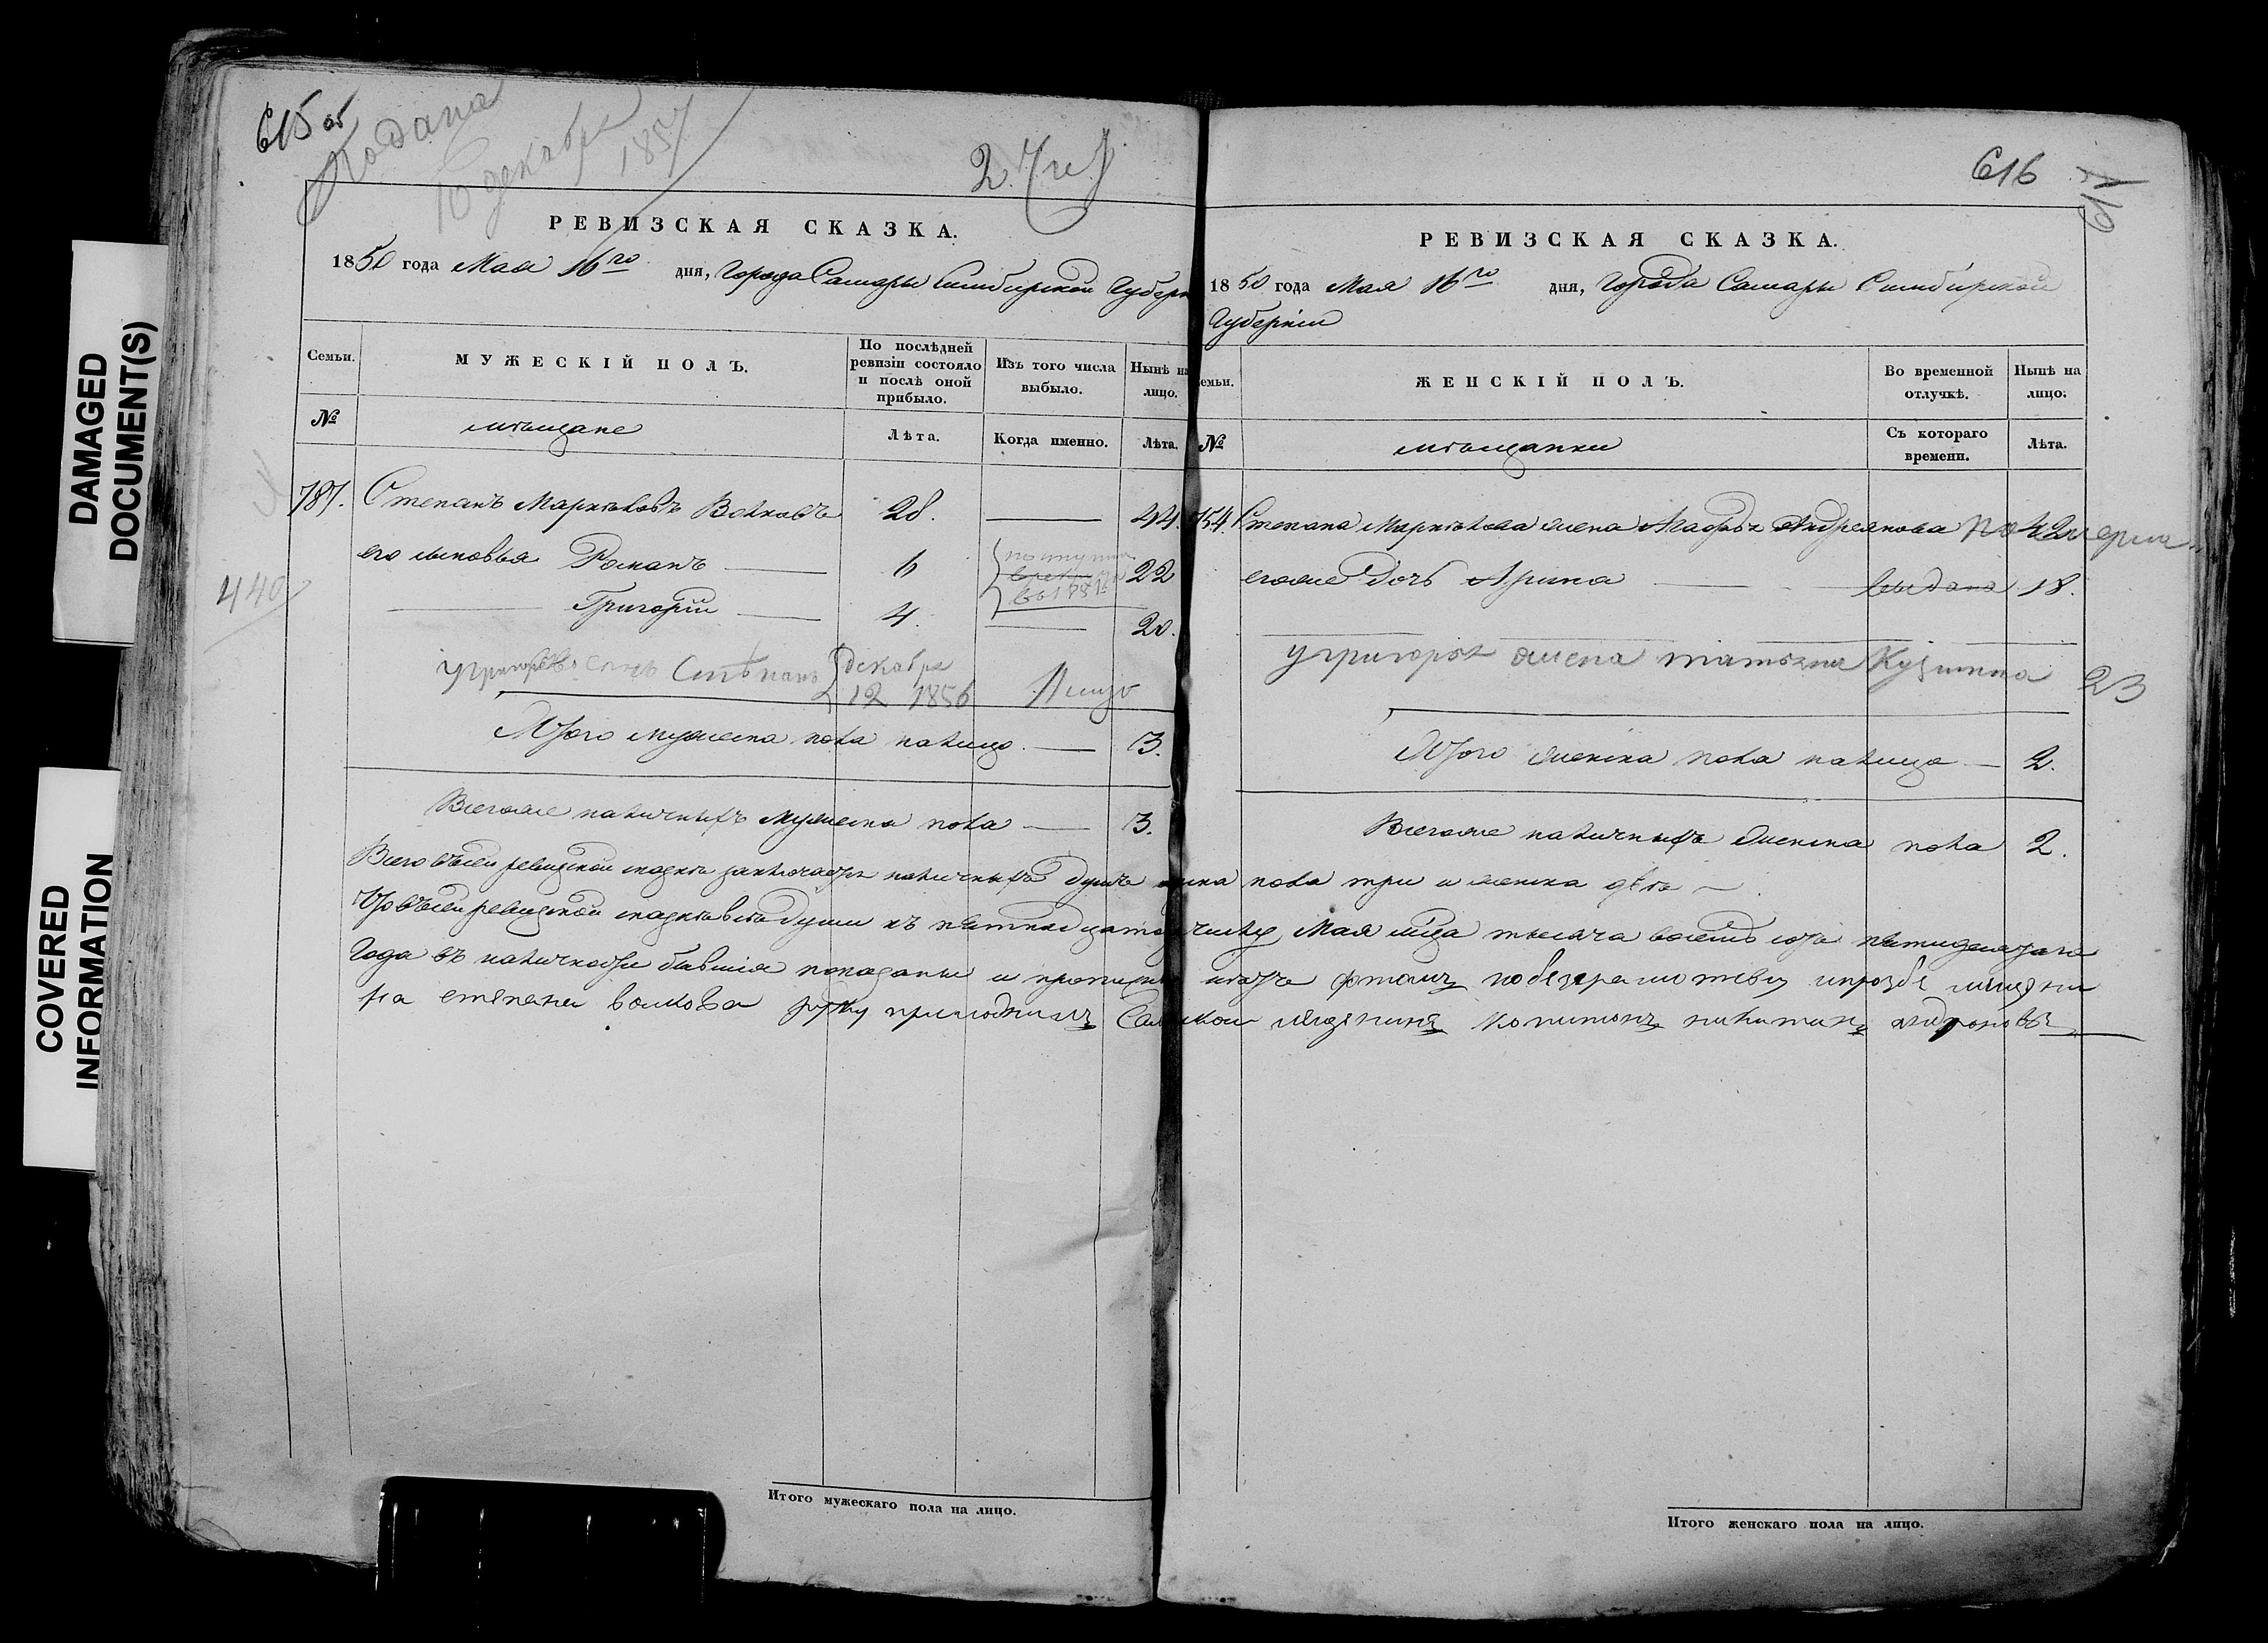 DAMAGED
DOCUMENT(S)
COVERED
INFORMATION
615 об
Подана
10 декабря
1857
2.
РЕВИЗСКАЯ СКАЗКА.
1850 года Мая 16го дня, Города Самары Симбирской Губерн
Семьи.
МУЖЕСКІЙ ПОЛЪ.
По послѣдней ревизіи состояло и послѣ оной прибыло.
Изъ того числа выбыло.
Нынѣ на лицо.
№
мѣщане
Лѣта.
Когда именно.
Лѣта.
787. Степанъ Маркѣловъ Волковъ 28. 44.
его сыновья Романъ 6 22
Григорій 4. 20.
440
во 1851
У Григорья сынъ Стѣпанъ декабря
12 1856 Лицо
Итого мужеска пола налицо 3.
Всегоже наличныхъ мужеска пола 3.
616
РЕВИЗСКАЯ СКАЗКА.
1850 года Мая 16го дня, Города Самары Симбирской
Губерніи
емьи.
ЖЕНСКІЙ ПОЛЪ.
Во временной отлучкѣ.
Нынѣ на лицо.
№
мѣщанки
Съ котораго времени.
Лѣта.
754. Степана Маркѣлова жена Агафья Андреянова 42
егоже дочь Арина выдана 18.
у григорья жена татьяна Кузмина 23
Итого женска пола налицо 2.
Всегоже наличныхъ женска пола 2.
Всего въсей ревизской сказкѣ заключается наличныхъ душъ муска пола три и женска двѣ
Что въсей ревизской сказкѣ всѣ души къ пятнадцатому числу Мая мца тысяча восемь сотъ пятидесятаго
Года въ наличности бывшія показаны и
стѣпана волкова руку приложилъ
Итого мужескаго пола на лицо.
Итого женскаго пола на лицо.